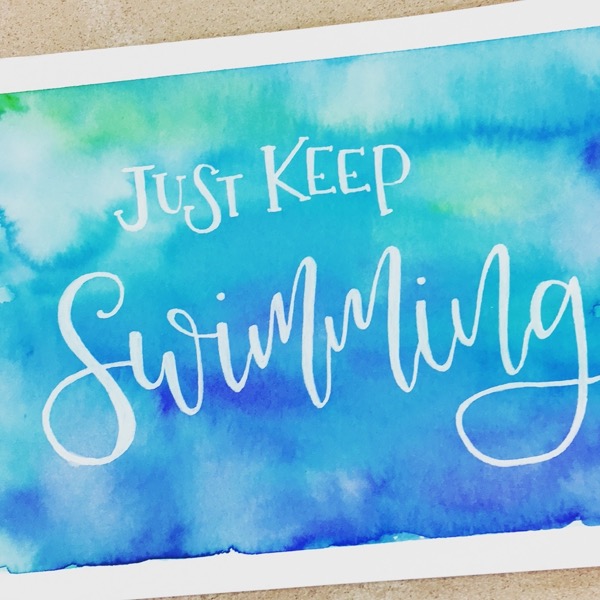 JUST KEEP
Swimming